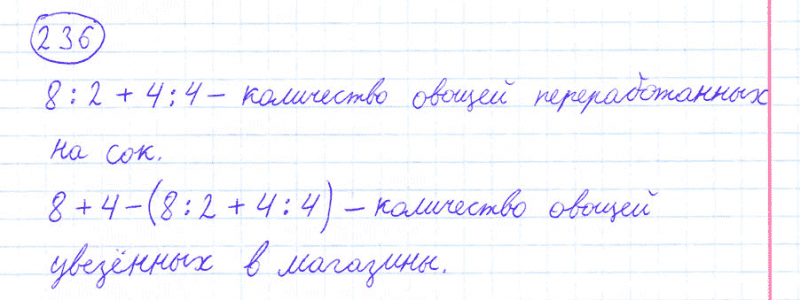 236
8 : 2 + 4 : 4 – количество овощей переработанных
на сок.
8 + 4 – (8 : 2 + 4 : 4) – количество овощей
увезённых в магазины.